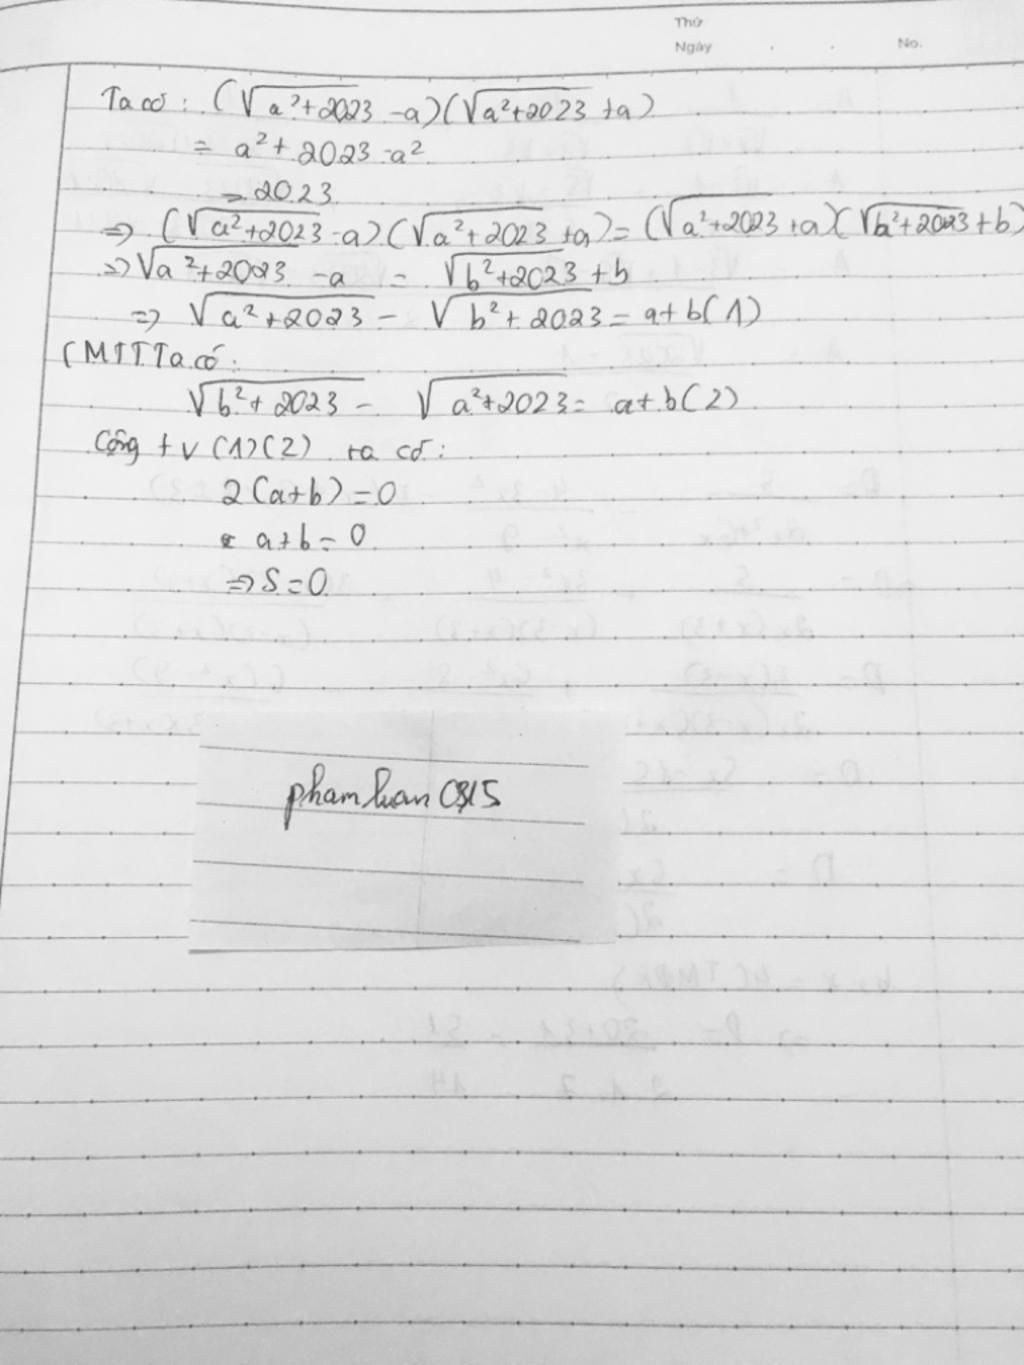 Thứ
Ngày . . No.
Ta có: (√a²+2023 -a)(√a²+2023 +a)
= a²+2023-a²
= 2023
=> (√a²+2023-a)(√a²+2023+a)=(√a²+2023+a)(√b²+2023+b)
=> √a²+2023 -a = √b²+2023+b
=> √a²+2023 - √b²+2023 = a+b(1)
CMTT Ta có:
√b²+2023 - √a²+2023 = a+b(2)
Cộng tv (1)(2) ta có:
2(a+b)=0
a+b=0
=> S=0